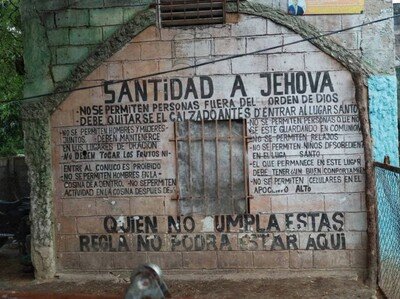 SANTIDAD A JEHOVA
-NO SE PERMITEN PERSONAS FUERA DEL ORDEN DE DIOS
-DEBE QUITARSE EL CALZADO ANTES D'ENTRAR AL LUGAR SANTO
-NO SE PERMITEN HOMBRES Y MUJERES
JUNTOS DEBEN MANTENERCE
EN LOS LUGARES DE ORACION
NO DEBEN TOCAR LOS FRUTOS NI
ENTRE AL CONUCO ES PROIBIDO
-NO SE PERMITEN HOMBRES EN LA
COSINA DE A DENTRO -NO SE PERMITEN
ACTIVIDAD EN LA COSINA DESPUES DE
-NO SE PERMITEN PERSONAS QUE NO
SE ESTE GUARDANDO EN COMUNION
-NO SE PERMITEN RELAJOS
-NO SE PERMITEN NINOS DESOBEDIENTE
EN EL LUGA SANTO
-EL QUE PERMANECE EN ESTE LUGAR
DEBE TENER UN BUEN COMPORTAMIENTO
-NO SE PERMITEN CELULARES EN EL
ALTO
QUIEN NO CUMPLA ESTAS
REGLA NO PODRA ESTAR AQUI